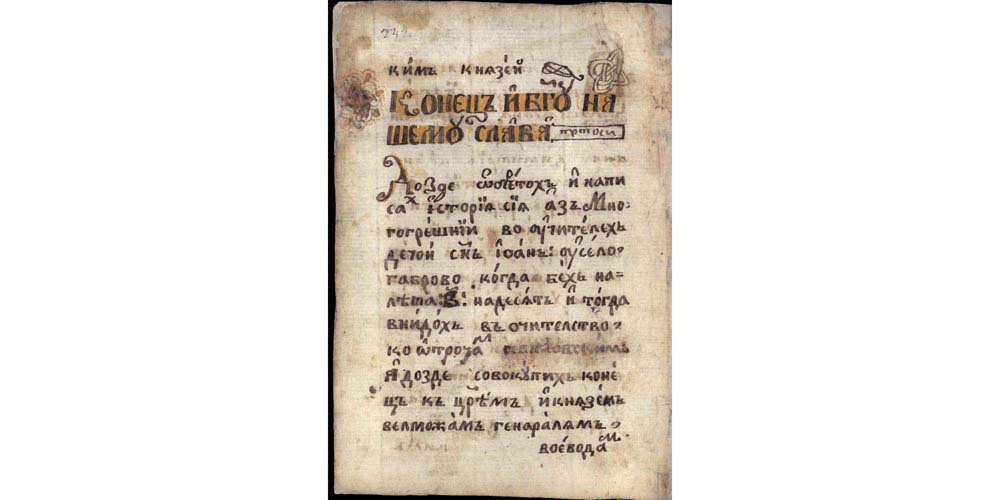 242
кимъ князей
Конецъ и бг҃ꙋ на
шемꙋ слава
Доздe обретохъ и напи
сах история сия азъ Мно
гогрешнїи во ꙋчителехъ
детои сн҃ъ їѡанъ: ꙋ село
габрово когда бехъ на
лѣта: в҃і: надесять и тогда
внидохъ въ очителство
ко ѿтроча
И доздe совокꙋпихъ коне
цъ къ цр҃емъ и княземъ
велможамъ генаралямъ
воевода м